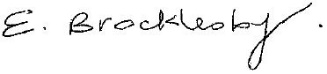 E. Brocklesby.